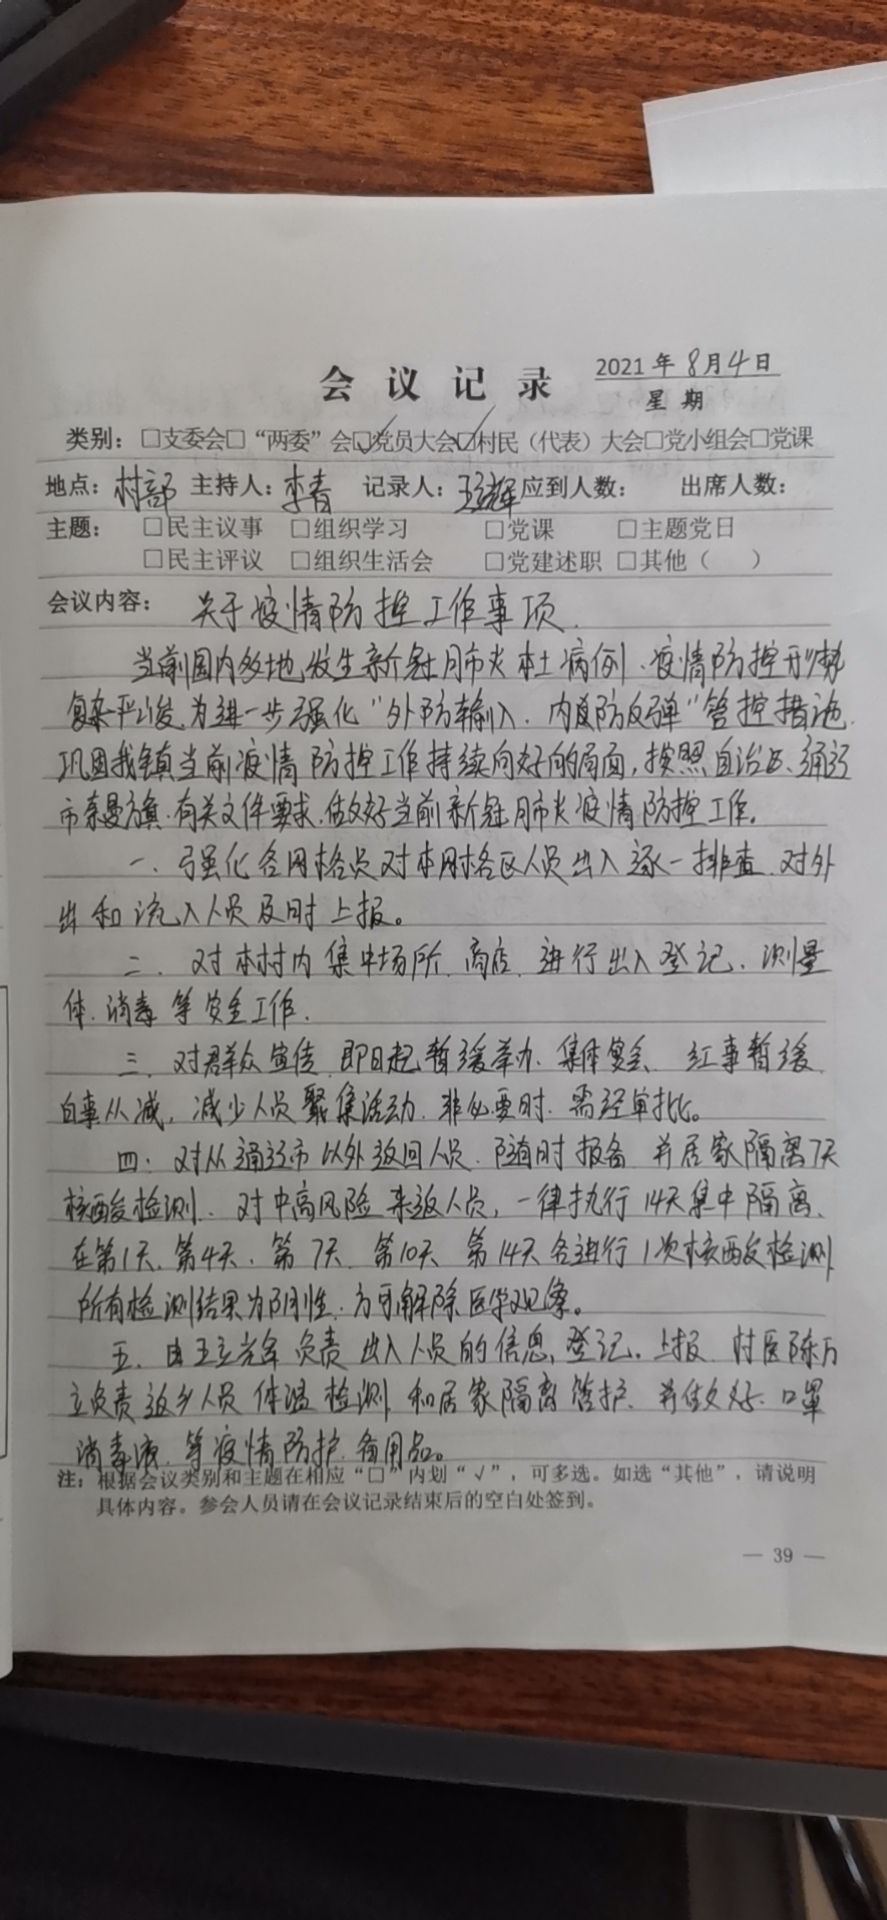 会议记录 2021年8月4日
星期
类别：□支委会□“两委”会☑党员大会☑村民（代表）大会□党小组会□党课
地点：村部 主持人：李青 记录人： 应到人数： 出席人数：
主题： □民主议事 □组织学习 □党课 □主题党日
□民主评议 □组织生活会 □党建述职 □其他（ ）
会议内容： 关于疫情防控工作事项.
当前国内多地发生新冠肺炎本土病例、疫情防控形势
复杂严峻,为进一步强化“外防输入、内防反弹”管控措施.
巩固我镇当前疫情防控工作持续向好的局面,按照自治区、通辽
市奈曼旗.有关文件要求.做好当前新冠肺炎疫情防控工作.
一、强化各网格员对本网格区人员出入逐一排查、对外
出和流入人员及时上报。
二、对本村内集中场所、商店、进行出入登记、测量
体.消毒等安全工作.
三、对群众宣传、即日起暂缓举办、集体宴会、红事暂缓
白事从减,减少人员聚集活动、非必要时、需经审批。
四：对从通辽市以外返回人员、随时报备 并居家隔离7天
核酸检测、对中高风险来返人员,一律执行14天集中隔离、
在第1天、第4天、第7天、第10天、第14天各进行1次核酸检测
所有检测结果为阴性、方可解除医学观察。
五、由王立 负责出入人员的信息,登记、上报、村医陈万
立负责返乡人员体温检测和居家隔离管护、并做好、口罩
消毒液、等疫情防护备用品。
注：根据会议类别和主题在相应“□”内划“√”，可多选。如选“其他”，请说明
具体内容。参会人员请在会议记录结束后的空白处签到。
— 39 —